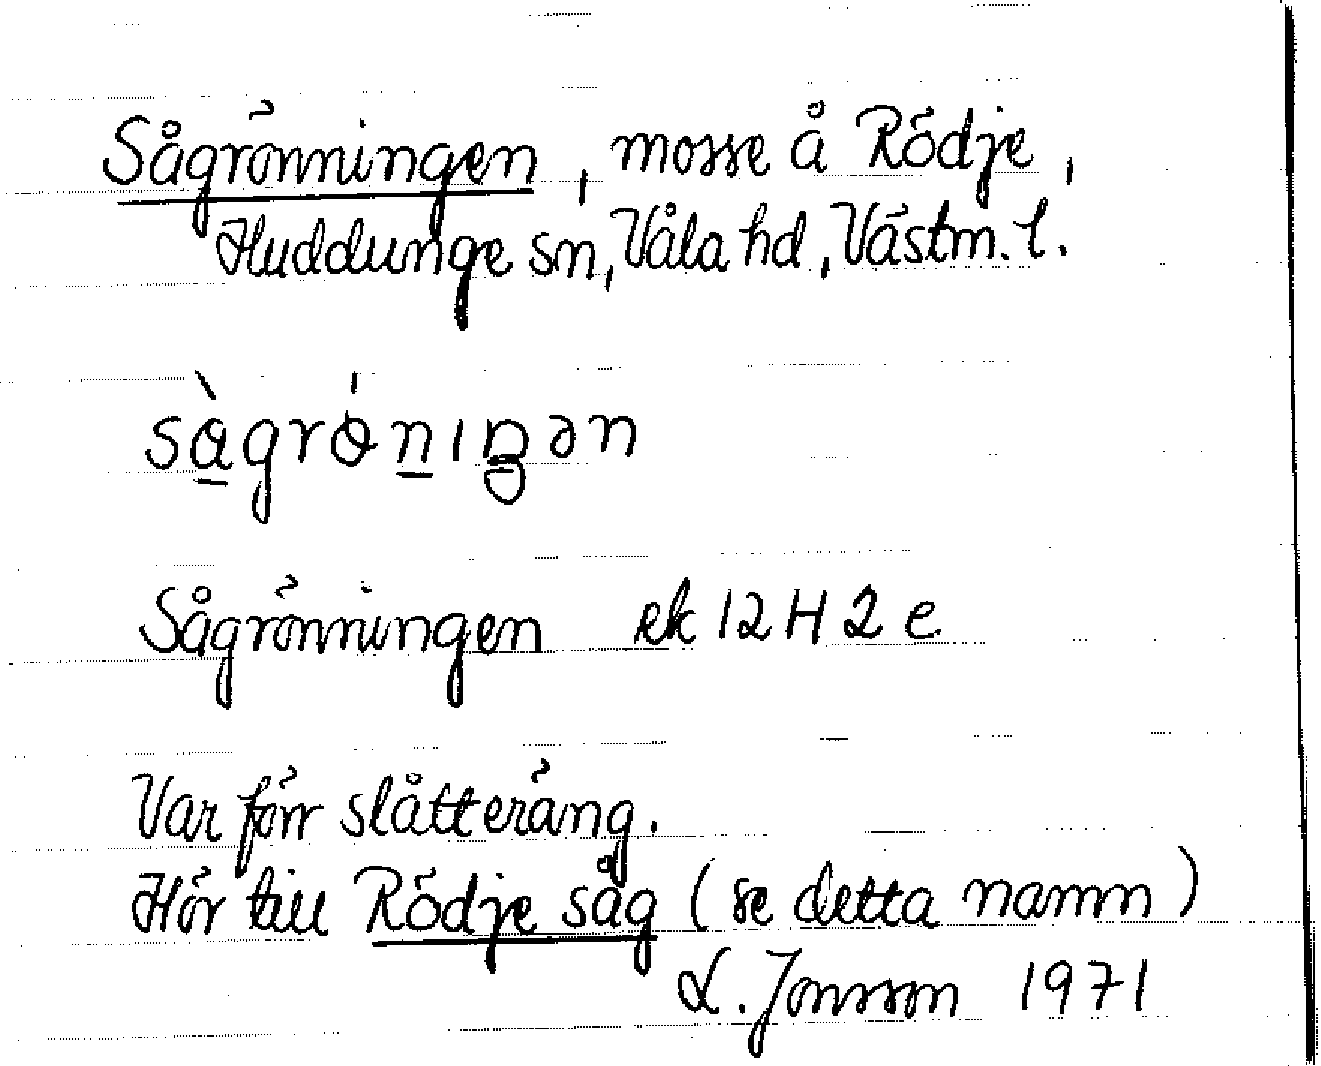 Sågrönningen, mosse å Rödje,
Huddunge sn, Våla hd, Västm. l.
sàgrö́niŋən
Sågrönningen ek 12 H 2 e
Var förr slåtteräng.
Hör till Rödje såg (se detta namn)
L. Jonsson 1971